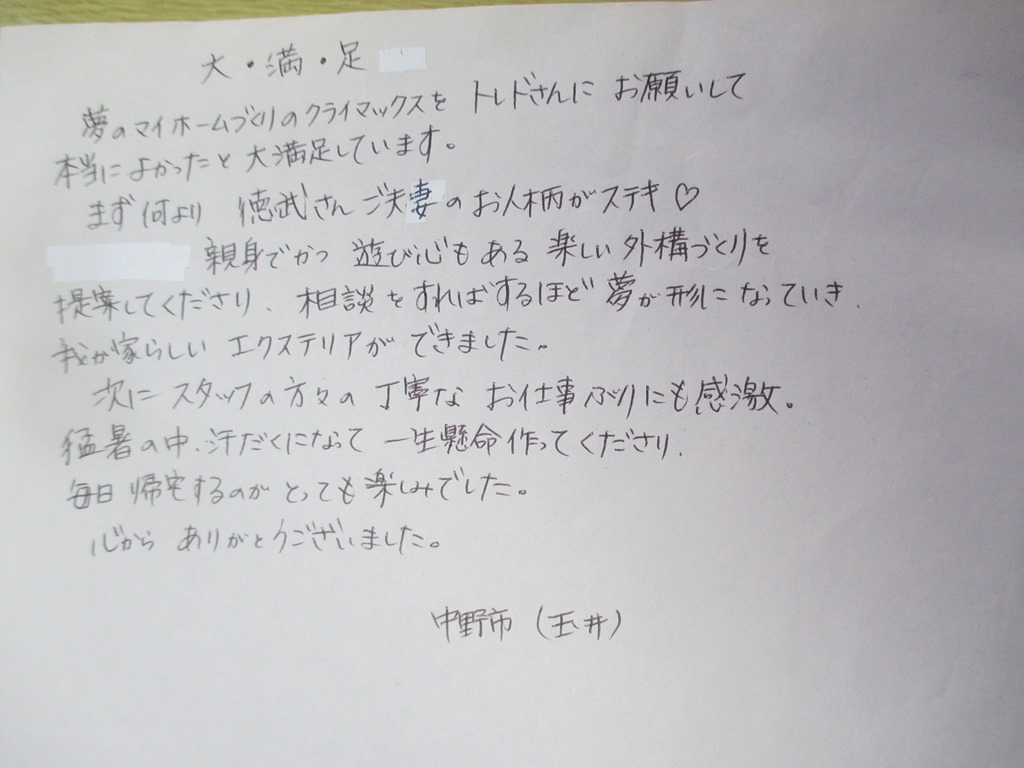 大・満・足
夢のマイホームづくりのクライマックスを トレドさんに お願いして
本当によかったと 大満足しています。
まず何より 徳武さんご夫妻のお人柄がステキ♡
親身でかつ 遊び心もある 楽しい外構づくりを
提案してくださり、相談をすればするほど 夢が形になっていき、
我が家らしい エクステリアが できました。
次に スタッフの方々の 丁寧な お仕事ぶりにも感激。
猛暑の中、汗だくになって 一生懸命作ってくださり、
毎日 帰宅するのが とっても楽しみでした。
心から ありがとうございました。
中野市 (玉井)